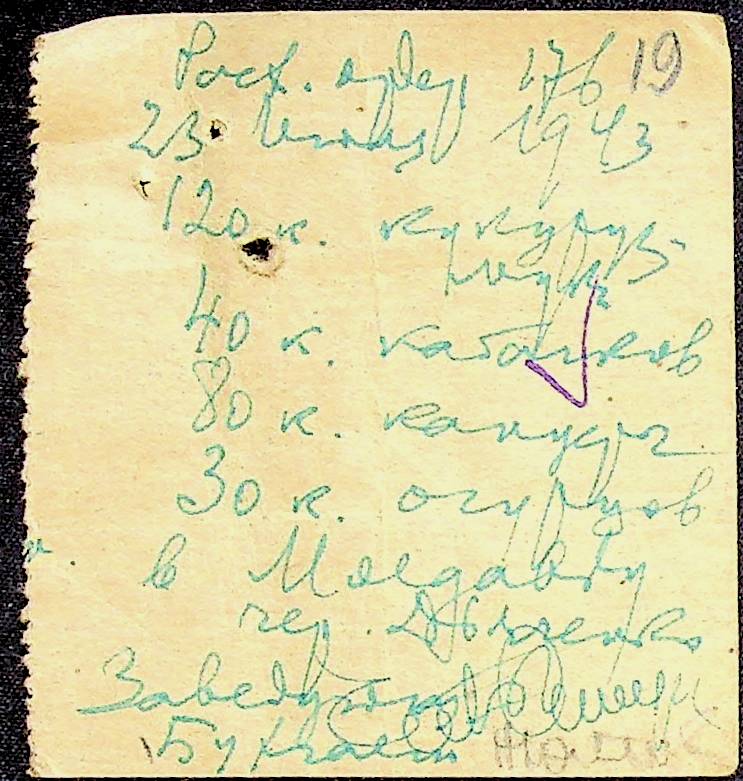 Расх. ордер 176 19
23 Июля 1943
120 к. кукуруз.
муки
40 к. кабачков
80 к. капусты
30 к. огурцов
в Молдавку
чер.
Заведующий
Бухгалтер